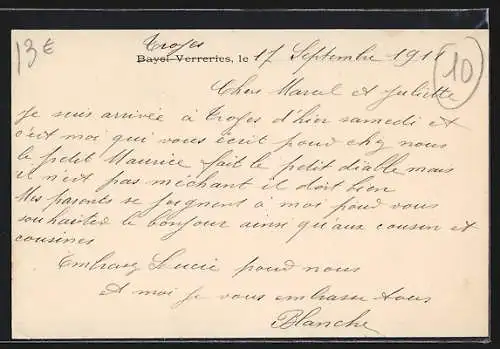 13€
Troyes
Bayel-Verreries, le 17 Septembre 191
10
Chers Marcel et Juliette
Je suis arrivée à Troyes d'hier samedi et
c'est moi qui vous écrit pour chez nous
le petit Maurice fait le petit diable mais
il n'est pas méchant il dort bien
Mes parents se joignent à moi pour vous
souhaiter le bonjour ainsi qu'aux cousin et
cousines
Embrassez Lucie pour nous
Et moi je vous embrasse tous
Blanche